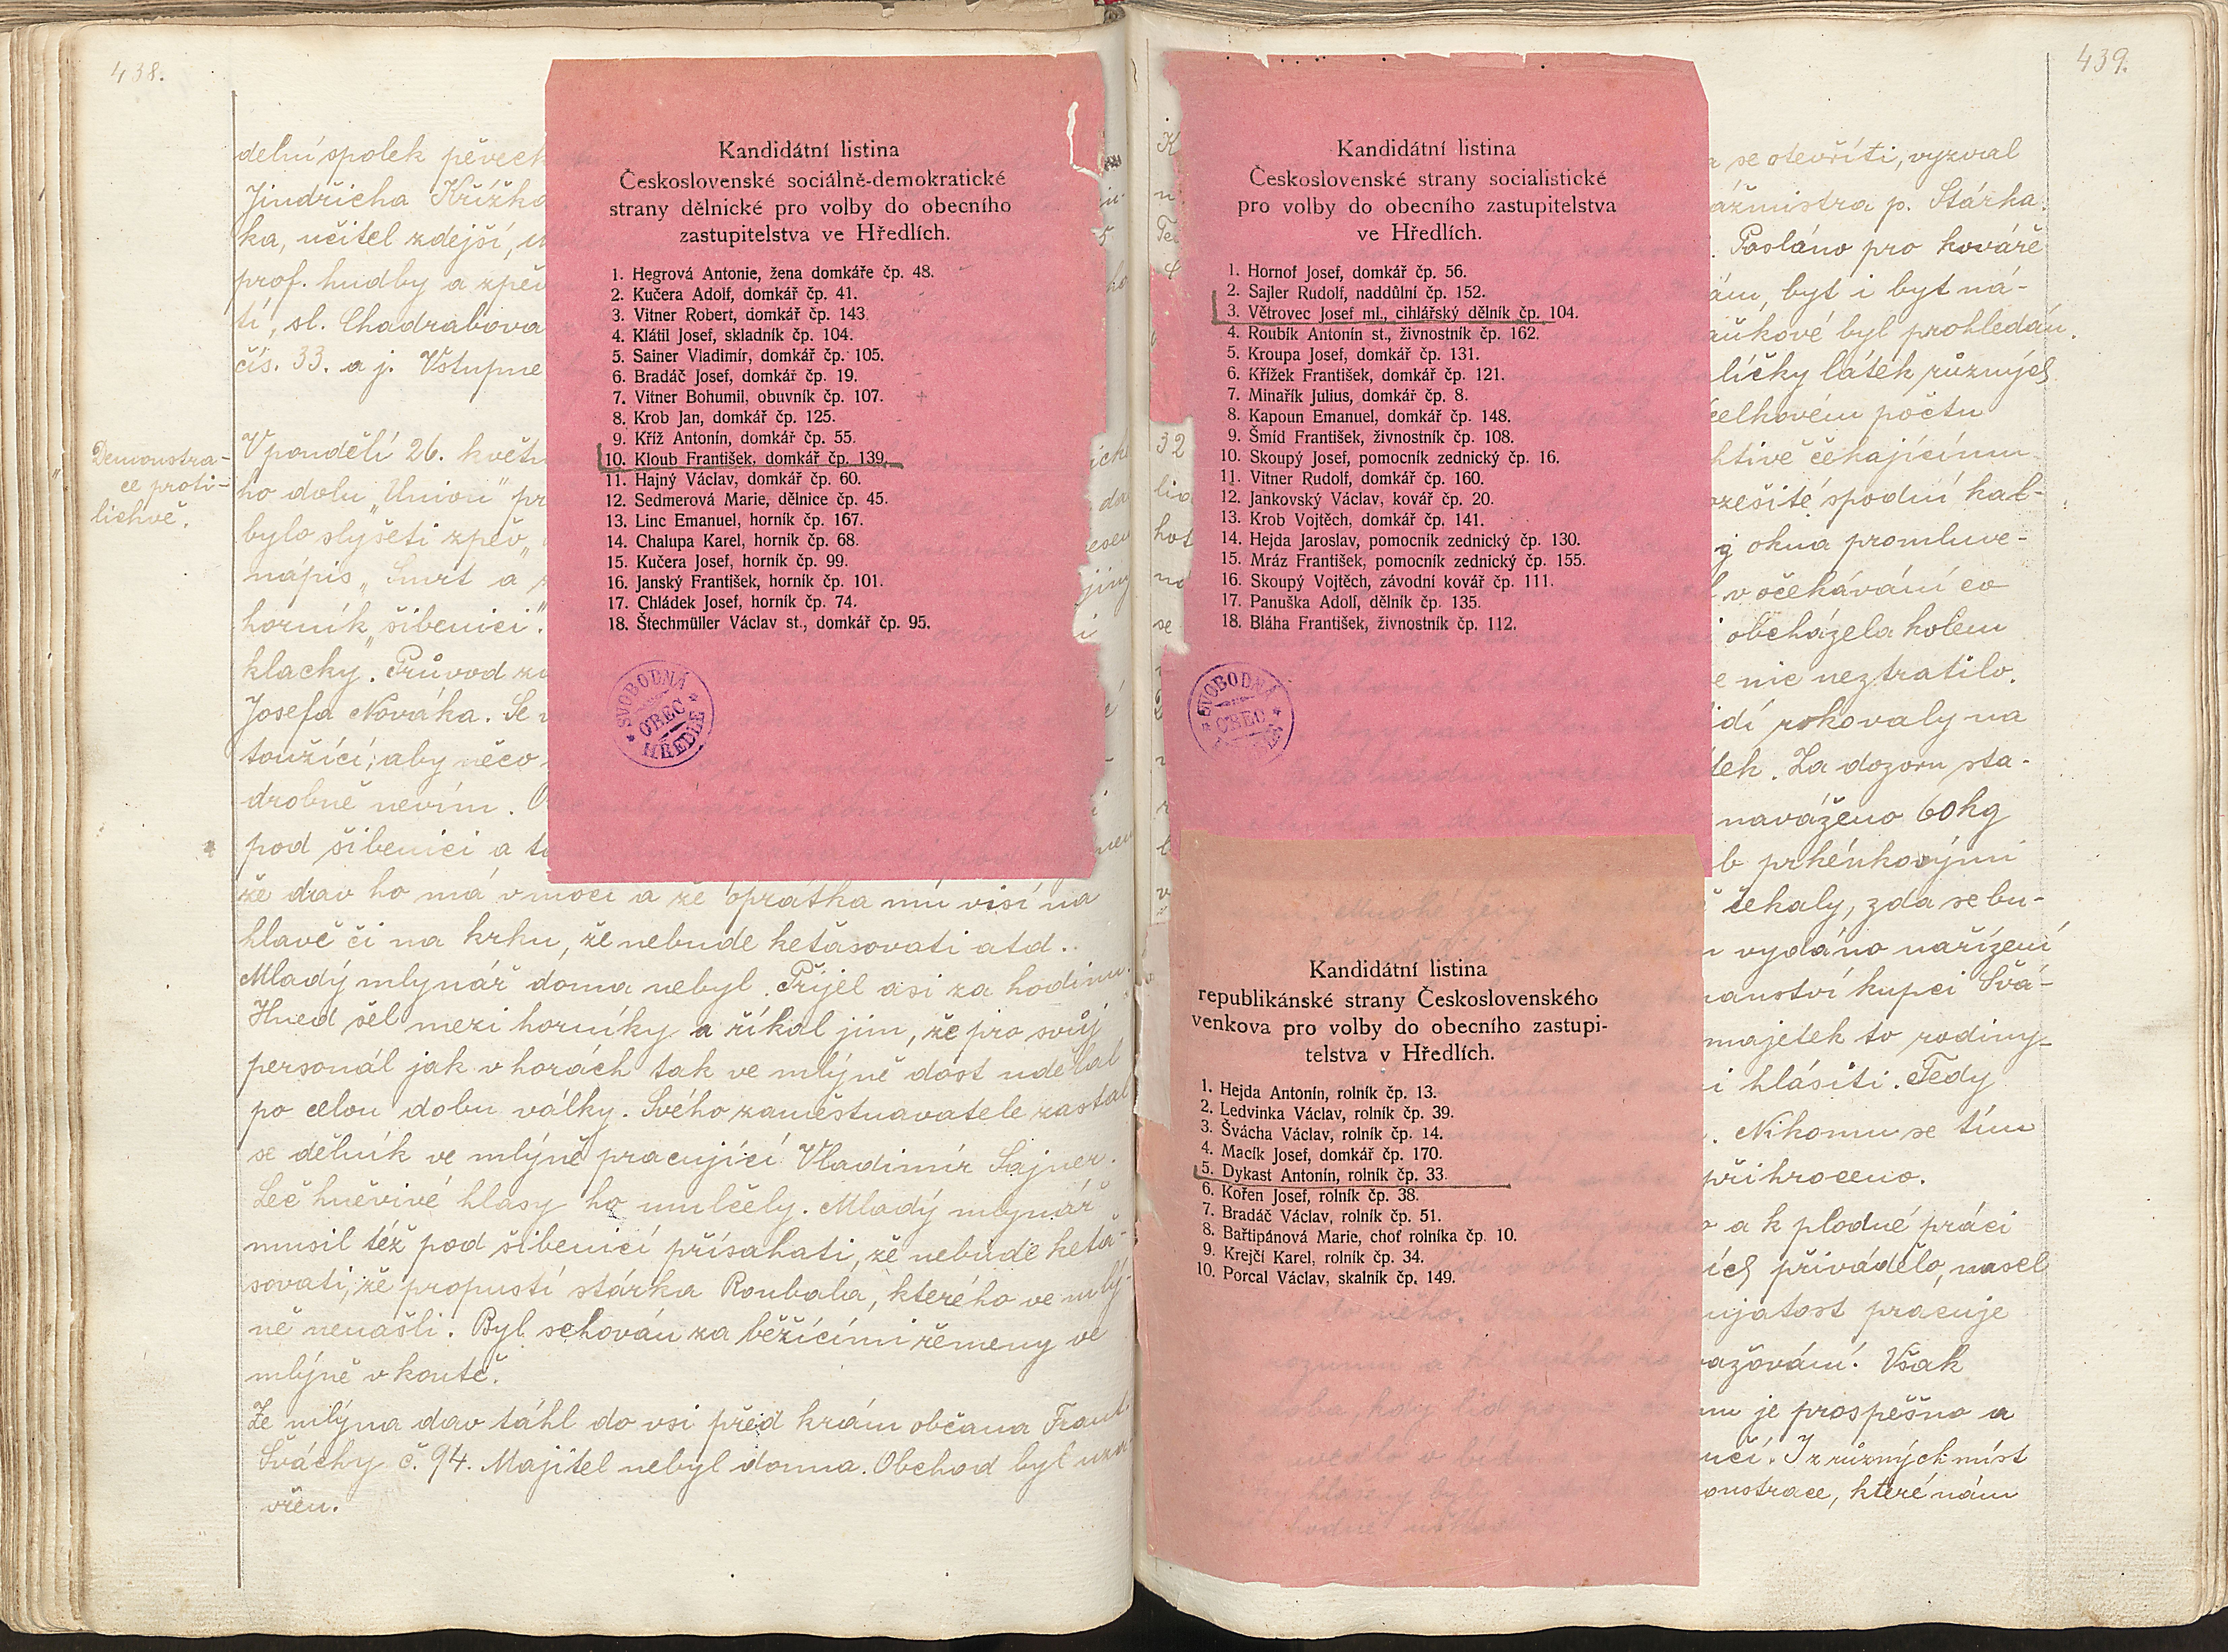 438.
delní spolek pěveck
Jindřicha Křížko
ka, učitel zdejší, u
prof. hudby a zpěv
tí, sl. Chadrabova
čís. 33. a j. Vstupne
Demonstra-
ce proti-
lichvě.
V pondělí 26. květn
ho dolu „Union" pr
bylo slyšeti zpěv „
nápis „Smrt a
horník „šibenici".
klacky. Průvod
Josefa Nováka. Se
toužící, aby něco
drobně nevím. O
pod šibenici a
že dav ho má v moci a že oprátka mu visí na
hlavě či na krku, že nebude keťasovati atd..
Mladý mlynář doma nebyl. Přijel asi za hodinu.
Hned šel mezi horníky a říkal jim, že pro svůj
personál jak v horách tak ve mlýně dost udělal
po celou dobu války. Svého zaměstnavatele zastal
se dělník ve mlýně pracující Vladimír Sajner.
Leč hněvivé hlasy ho umlčely. Mladý mlynář
musil též pod šibenicí přísahati, že nebude keťa-
sovati, že propustí stárka Roubala, kterého ve mlý-
ně nenašli. Byl schován za běžícími řemeny ve
mlýně v koutě.
Ze mlýna dav táhl do vsi před krám občana Frant.
Šváchy č. 94. Majitel nebyl doma. Obchod byl uza
vřen.
Kandidátní listina
Československé sociálně-demokratické
strany dělnické pro volby do obecního
zastupitelstva ve Hředlích.
1. Hegrová Antonie, žena domkáře čp. 48.
2. Kučera Adolf, domkář čp. 41.
3. Vitner Robert, domkář čp. 143
4. Klátil Josef, skladník čp. 104.
5. Sainer Vladimír, domkář čp. 105.
6. Bradáč Josef, domkář čp. 19.
7. Vitner Bohumil, obuvník čp. 107.
8. Krob Jan, domkář čp. 125.
9. Kříž Antonín, domkář čp. 55.
10. Kloub František, domkář čp. 139.
11. Hajný Václav, domkář čp. 60.
12. Sedmerová Marie, dělnice čp. 45.
13. Linc Emanuel, horník čp. 167.
14. Chalupa Karel, horník čp. 68.
15. Kučera Josef, horník čp. 99.
16. Janský František, horník čp. 101.
17. Chládek Josef, horník čp. 74.
18. Štechmüller Václav st., domkář čp. 95.
SVOBODNÁ
OBEC
HŘEDLE
439.
Kandidátní listina
Československé strany socialistické
pro volby do obecního zastupitelstva
ve Hředlích.
1. Hornof Josef, domkář čp. 56.
2. Sajler Rudolf, naddůlní čp. 152.
3. Větrovec Josef ml., cihlářský dělník čp. 104.
4. Roubík Antonín st., živnostník čp. 162.
5. Kroupa Josef, domkář čp. 131.
6. Křížek František, domkář čp. 121.
7. Minařík Julius, domkář čp. 8.
8. Kapoun Emanuel, domkář čp. 148.
9. Šmíd František, živnostník čp. 108.
10. Skoupý Josef, pomocník zednický čp. 16.
11. Vitner Rudolf, domkář čp. 160.
12. Jankovský Václav, kovář čp. 20.
13. Krob Vojtěch, domkář čp. 141.
14. Hejda Jaroslav, pomocník zednický čp. 130.
15. Mráz František, pomocník zednický čp. 155.
16. Skoupý Vojtěch, závodní kovář čp. 111.
17. Panuška Adolf, dělník čp. 135.
18. Bláha František, živnostník čp. 112.
SVOBODNÁ
OBEC
Kandidátní listina
republikánské strany Československého
venkova pro volby do obecního zastupi-
telstva v Hředlích.
1. Hejda Antonín, rolník čp. 13.
2. Ledvinka Václav, rolník čp. 39.
3. Švácha Václav, rolník čp. 14.
4. Macík Josef, domkář čp. 170.
5. Dykast Antonín, rolník čp. 33.
6. Kořen Josef, rolník čp. 38.
7. Bradáč Václav, rolník čp. 51.
8. Bařtipánová Marie, choť rolníka čp. 10.
9. Krejčí Karel, rolník čp. 34.
10. Porcal Václav, skalník čp. 149.
se otevříti, vyzval
ážmistra p. Stárka.
. Posláno pro kováře
ám, byt i byt ná-
aukové byl prohledán.
líčky látek různých
celkovém počtu
htivě čekajícímu
ozešité spodní kal-
z okna promluve-
v očekávání co
obcházela kolem
e nic neztratilo.
dí rokovaly na
tek. Za dozoru sta-
naváženo 60 kg
b prkénkovými
čekaly, zda se bu-
vydáno nařízení
anství kupci Švá-
majetek to rodiny-
i hlásiti. Tedy
. Nikomu se tím
přihroceno.
a k plodné práci
ích přivádělo, nasel
ujatost pracuje
važování. Však
mu je prospěšno a
učí. I z různých míst
onstrace, které nám